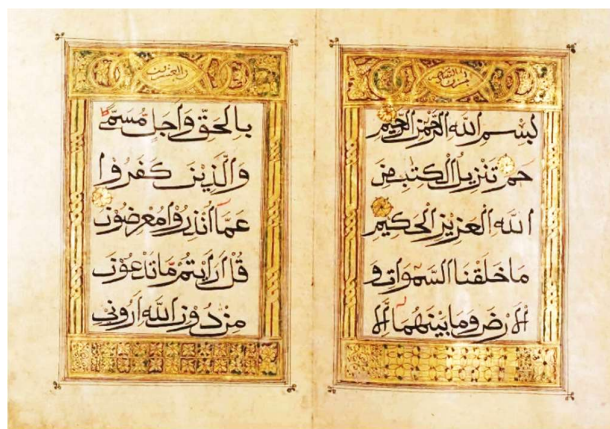 بسم الله الرحمن الرحيم
حم تنزيل الكتب من
الله العزيز الحكيم
ما خلقنا السموات و
الارض وما بينهما الا
بالحق واجل مسمى
والذين كفروا
عما انذروا معرضون
قل ارايتم ما تدعون
من دون الله اروني